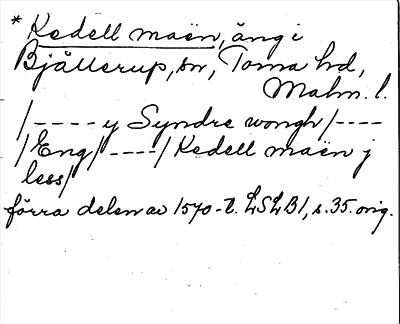 * Kedell maën, äng i
Bjällerup, sn, Torna hd,
Malm. l.
/---- y Syndre wongh /----
/Eng/----/ Kedell maën j
less/
förra delen av 1570-t. LSLB1, s. 35. orig.